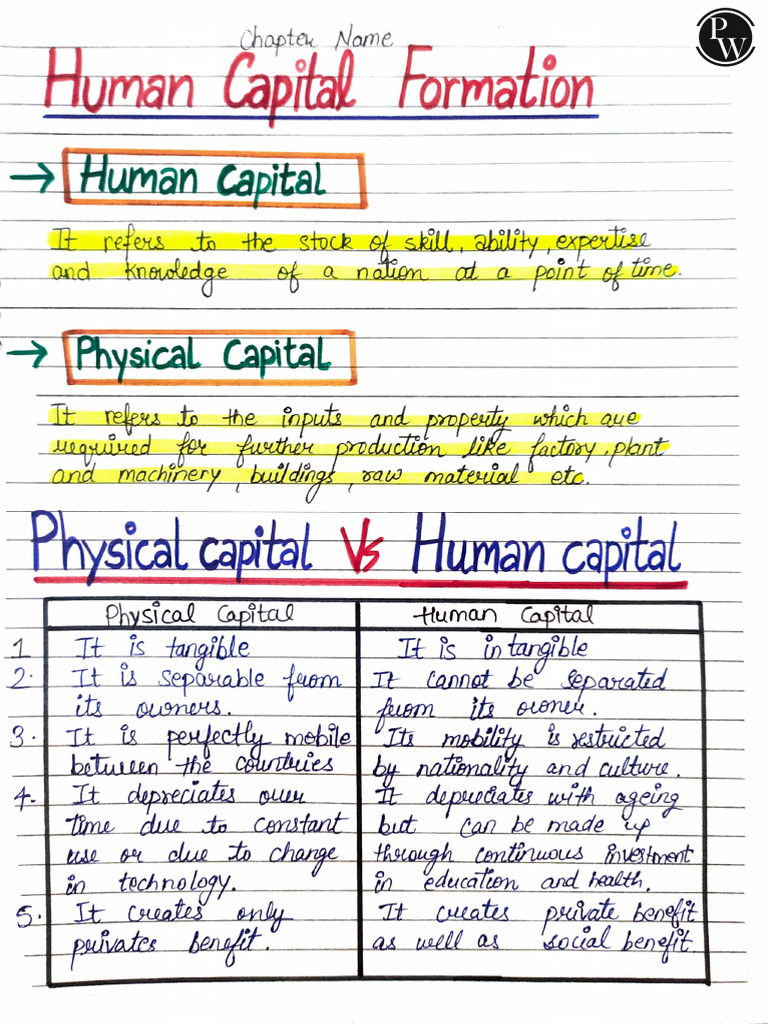 Chapter Name
PW
Human Capital Formation
→ Human Capital
It refers to the stock of skill, ability, expertise
and knowledge of a nation at a point of time.
→ Physical Capital
It refers to the inputs and property which are
required for further production like factory, plant
and machinery, buildings, raw material etc.
Physical capital Vs Human capital
Physical Capital
Human Capital
1 It is tangible
It is intangible
2. It is separable from
its owners.
It cannot be separated
from its owner.
3. It is perfectly mobile
between the countries
Its mobility is restricted
by nationality and culture.
4. It depreciates over
time due to constant
use or due to change
in technology.
It depreciates with ageing
but can be made up
through continuous investment
in education and health.
5. It creates only
privates benefit.
It creates private benefit
as well as social benefit